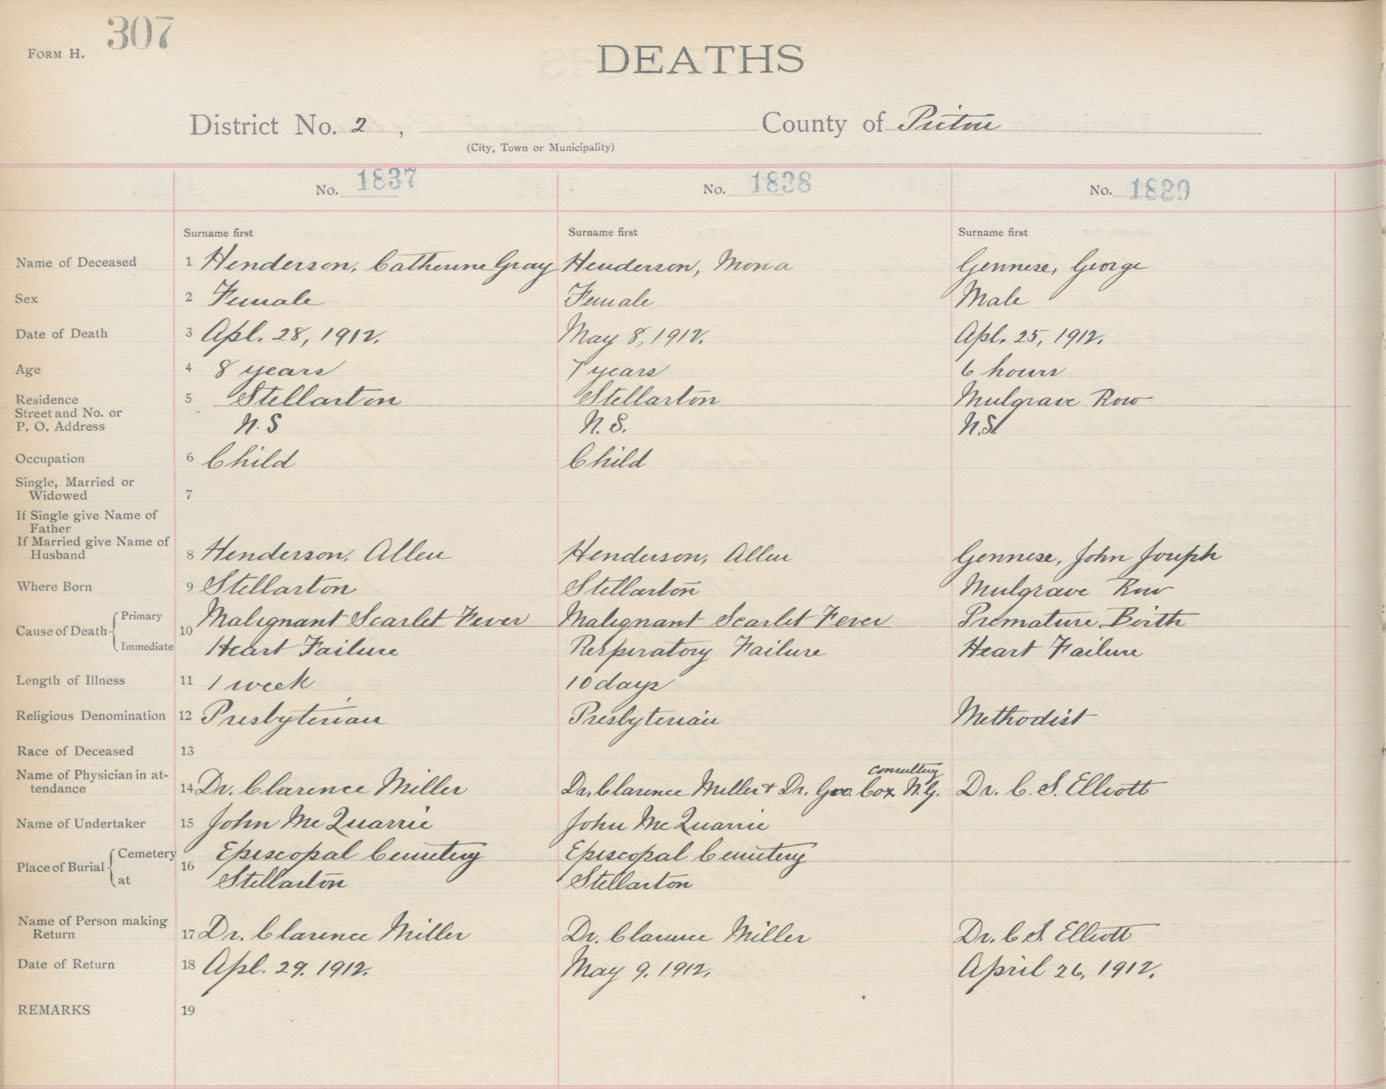 307
FORM H.
DEATHS
District No. 2 , County of Pictou
(City, Town or Municipality)
No. 1837 No. 1838 No. 1839
Surname first Surname first Surname first
Name of Deceased 1 Henderson, Catherine Gray Henderson, Mona Gennese, George
Sex 2 Female Female Male
Date of Death 3 Apl. 28, 1912. May 8, 1912. Apl. 25, 1912.
Age 4 8 years 7 years 6 hours
Residence 5 Stellarton Stellarton Mulgrave Row
Street and No. or
P. O. Address N.S N.S. N.S.
Occupation 6 Child Child
Single, Married or
Widowed 7
If Single give Name of
Father
If Married give Name of
Husband 8 Henderson, Allen Henderson, Allen Gennese, John Joseph
Where Born 9 Stellarton Stellarton Mulgrave Row
Cause of Death Primary 10 Malignant Scarlet Fever Malignant Scarlet Fever Premature Birth
Immediate Heart Failure Respiratory Failure Heart Failure
Length of Illness 11 1 week 10 days
Religious Denomination 12 Presbyterian Presbyterian Methodist
Race of Deceased 13
Name of Physician in at- consulting
tendance 14 Dr. Clarence Miller Dr. Clarence Miller & Dr. Geo. Cox N.G. Dr. C. S. Elliott
Name of Undertaker 15 John McQuarrie John McQuarrie
Place of Burial Cemetery 16 Episcopal Cemetery Episcopal Cemetery
at Stellarton Stellarton
Name of Person making
Return 17 Dr. Clarence Miller Dr. Clarence Miller Dr. C S. Elliott
Date of Return 18 Apl. 29. 1912. May 9. 1912. April 26, 1912.
REMARKS 19